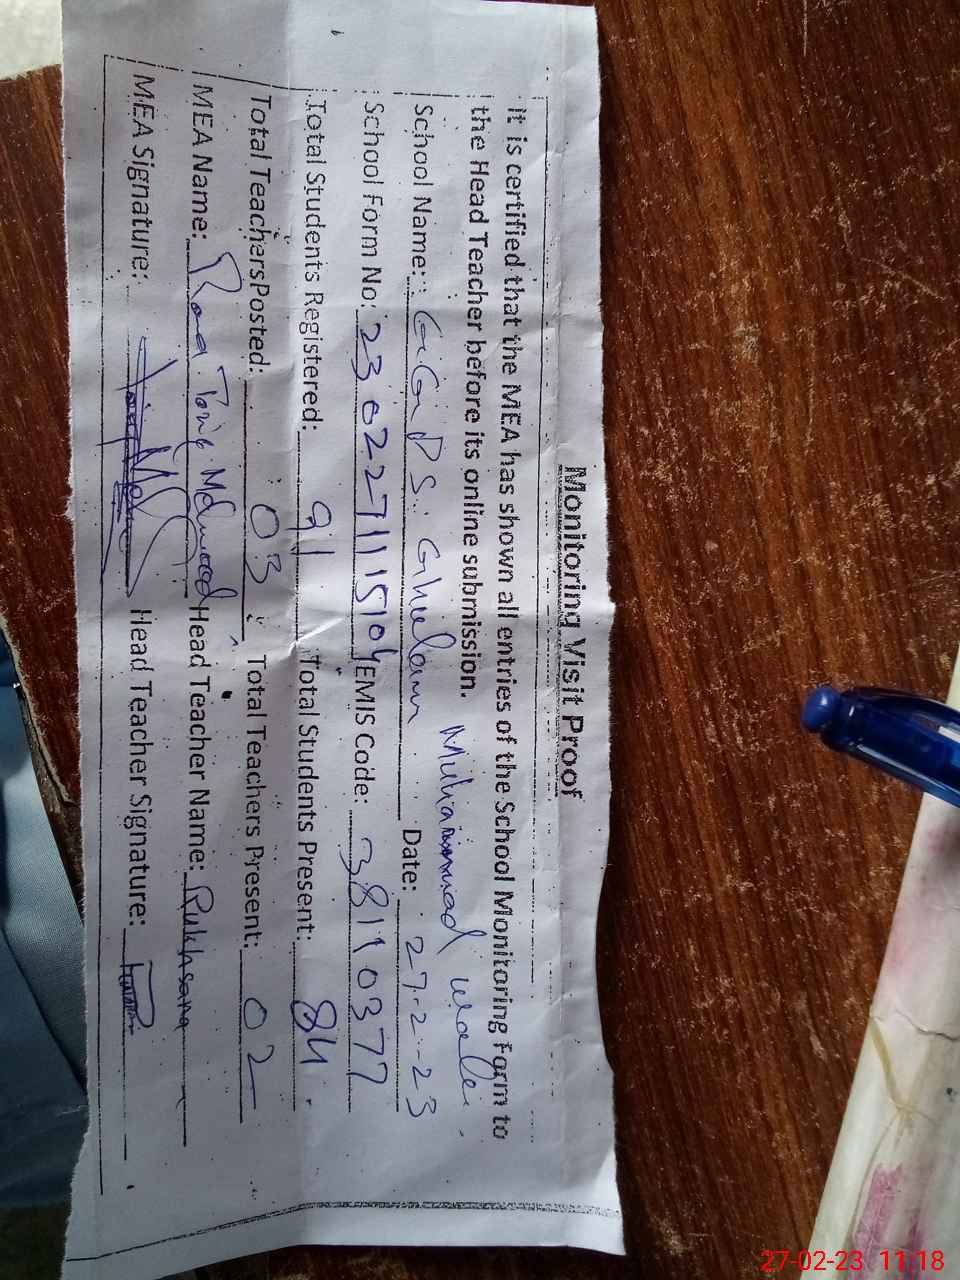 Monitoring Visit Proof
It is certified that the MEA has shown all entries of the School Monitoring Form to
the Head Teacher before its online submission.
Muhammad wala.
School Name: G.G.P.S. Ghulam Date: 27-2-23
School Form No: 2302271115104 EMIS Code: 38110377
Total Students Registered: 91 Total Students Present: 84
Total TeachersPosted: 03 Total Teachers Present: 02
MEA Name: Rana Tariq Mehmood Head Teacher Name: Rukhsana
MEA Signature: Head Teacher Signature:
27-02-23 11:18